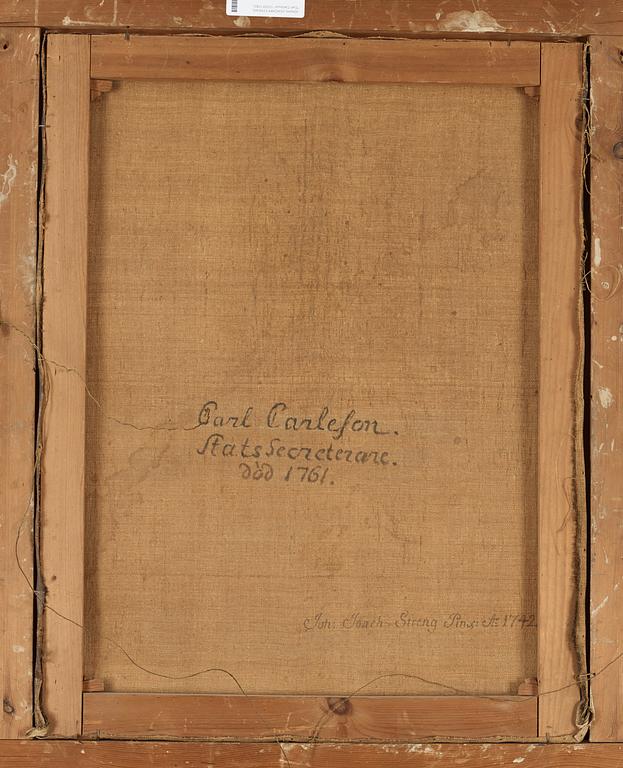 Carl Carleſon.
StatsSecreterare.
död 1761.
Joh: Joach: Streng Pinx: A: 1742.